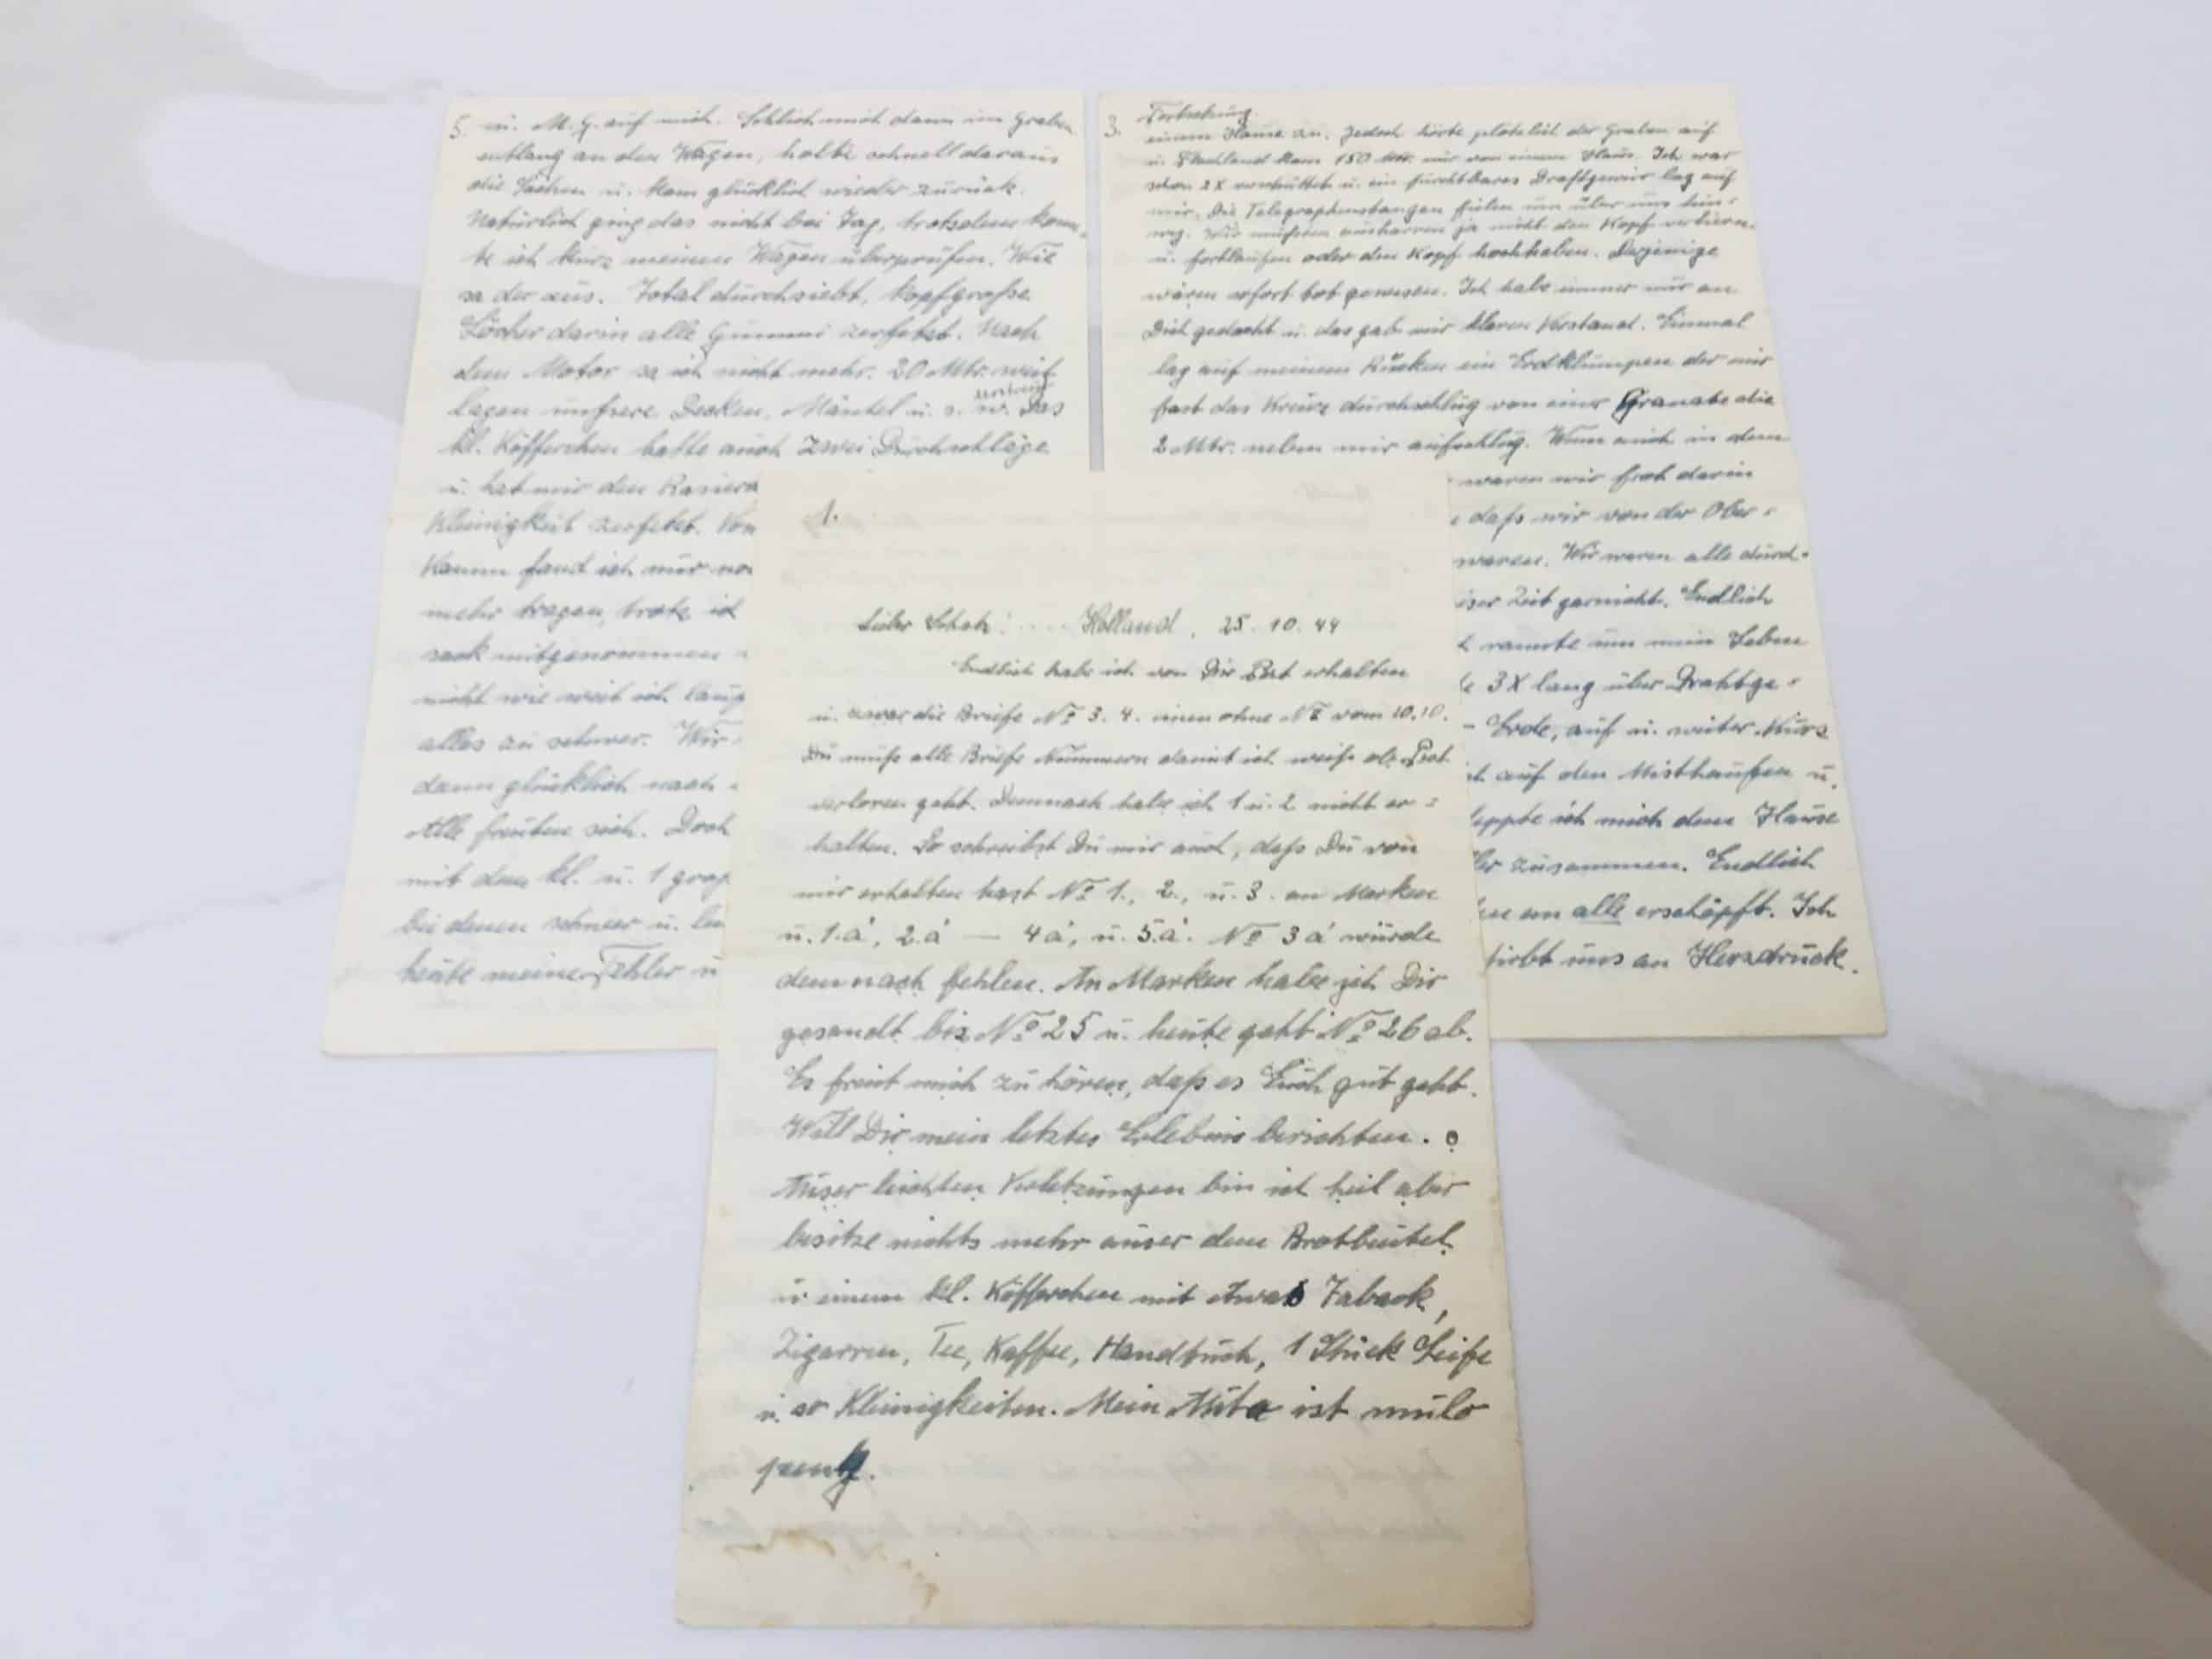 5. u. M.G. auf mich. Schlich mich dann im Graben
entlang an den Wagen, holte schnell daraus
die Sachen u. kam glücklich wieder zurück.
Natürlich ging das nicht bei Tag, trotzdem konn-
te ich kurz meinen Wagen überprüfen. Wie
sa der aus. Total durchsiebt, kopfgroße
Löcher darin alle Gummi zerfetzt. Nach
dem Motor sa ich nicht mehr. 20 Mtr. weit
lagen unsere Decken, Mäntel u. s. w. Das
kl. Köfferchen hatte auch zwei Durchschläge
u. hat mir den Rasiera
Kleinigkeit zerfetzt. Von
Kaum fand ich nur no
mehr tragen, trotz ich
sack mitgenommen
nicht wie weit ich lauf
alles zu schwer. Wir
dann glücklich nach
Alle freuten sich. Doch
mit dem kl. u. 1 groß
bei denen schwer u. lei
heute meine Fehler u
3. Fortsetzung
einem Hause an. Jedoch hörte plötzlich der Graben auf
u. Flachland kam 150 Mtr. nur von einem Haus. Ich war
schon 2X verschüttet u. ein furchtbares Draftgewirr lag auf
mir. Die Telegraphenstangen fielen um über uns hin-
weg. Wir mußten ausharren ja nicht den Kopf verlieren
u. fortlaufen oder den Kopf hochhaben. Derjenige
wären sofort tot gewesen. Ich habe immer nur an
Dich gedacht u. das gab mir klaren Verstand. Einmal
lag auf meinem Rücken ein Erdklumpen der mir
fast das Kreuz durchschlug von einer Granate die
2 Mtr. neben mir aufschlug. Wenn auch in dem
waren wir froh darin
daß wir von der Ober-
waren. Wir waren alle durch-
ser Zeit garnicht. Endlich
rannte um mein Leben
3X lang über Drahtge-
- Erde, auf u. weiter. Kurz
auf den Misthaufen u.
leppte ich mich dem Hause
ler zusammen. Endlich
en an alle erschöpft. Ich
tirbt uns an Herzdruck.
1.
Lieber Schatz! Holland, 25. 10. 44
Endlich habe ich von Dir Post erhalten
u. zwar die Briefe No 3. 4. einen ohne No vom 10.10.
Du muß alle Briefe Nummern damit ich weiß ob Post
verloren geht. Demnach habe ich 1 u. 2 nicht er-
halten. So schreibst Du mir auch, daß Du von
mir erhalten hast No 1., 2., u. 3. an Marken
u. 1.á, 2.á — 4á, u. 5.á. No 3á würde
demnach fehlen. An Marken habe ich Dir
gesandt bis No 25 u. heute geht No 26 ab.
Es freut mich zu hören, daß es Euch gut geht.
Will Dir mein letztes Erlebnis berichten.
Auser leichten Verletzungen bin ich heil aber
besitze nichts mehr auser dem Brotbeutel
u. einem kl. Köfferchen mit etwas Taback,
Zigarren, Tee, Kaffee, Handtuch, 1 Stück Seife
u. so Kleinigkeiten. Mein Auto ist